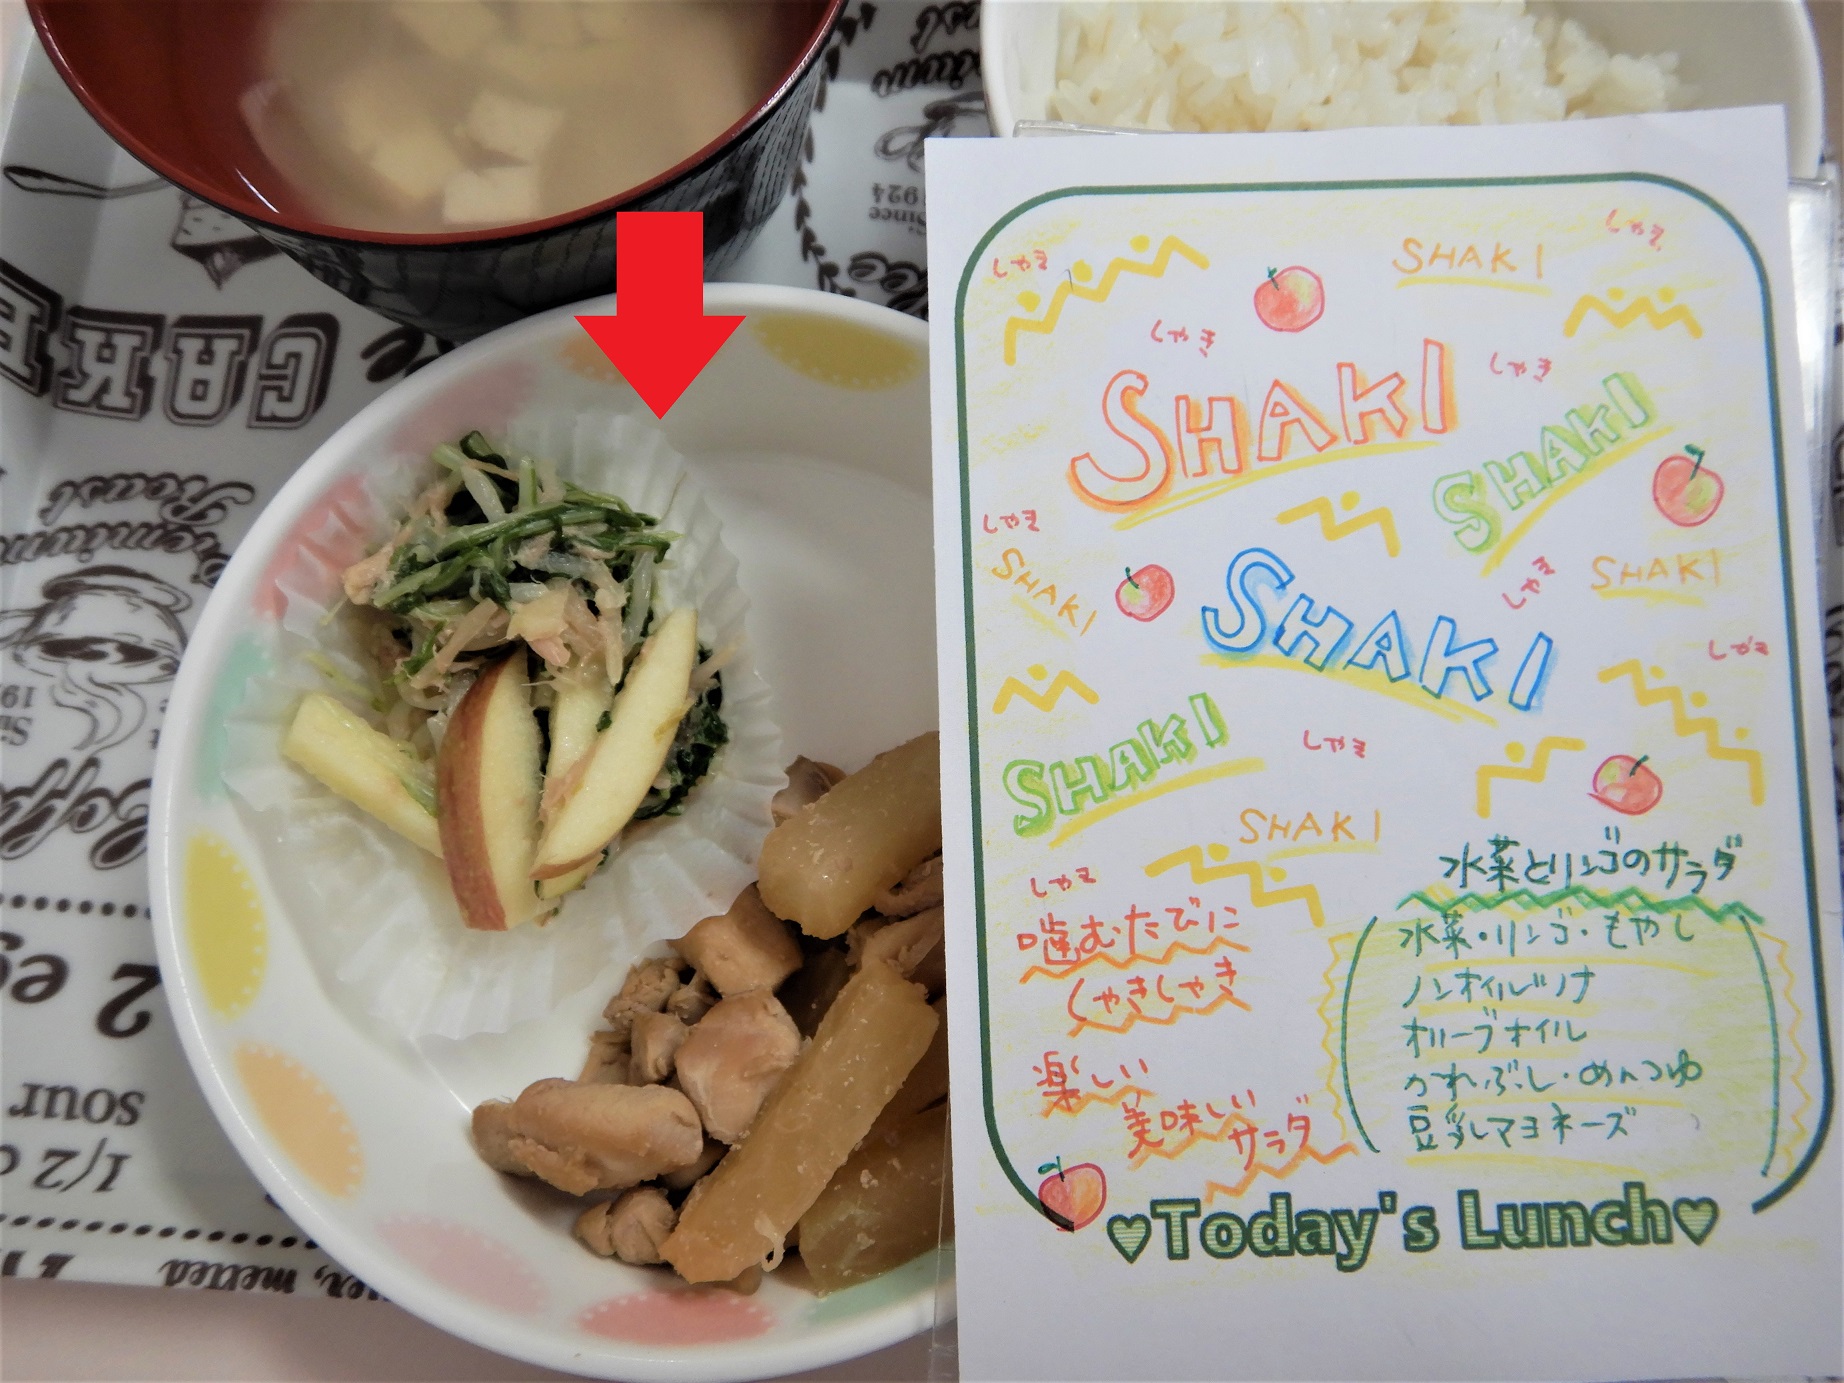 しゃき
SHAKI
しゃき
しゃき
SHAKI
しゃき
SHAKI
しゃき
SHAKI
しゃき
SHAKI
SHAKI
しゃき
SHAKI
しゃき
SHAKI
しゃき
水菜とリンゴのサラダ
水菜・リンゴ・もやし
ノンオイルツナ
オリーブオイル
かつおぶし・めんつゆ
豆乳マヨネーズ
噛むたびに
しゃきしゃき
楽しい
美味しい
サラダ
♥Today's Lunch♥
CAKE
Roast
Premium
Coffee
Since
1924
2
sour
1/2
melted